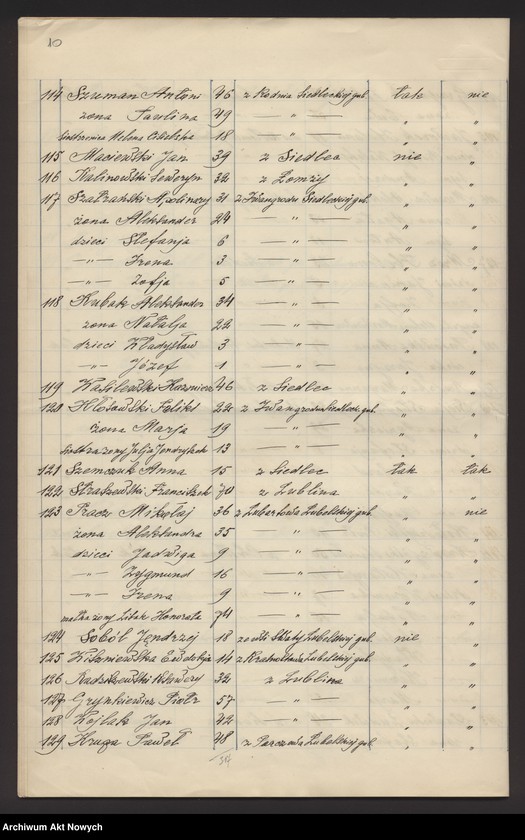 10
114 Szuman Antoni 46 z Kodnia Siedleckiej gub. tak nie
żona Paulina 49 — " — " "
siostrzenica Helena 18 — " — " "
115 Maciewski Jan 39 z Siedlec nie "
116 Kalinowski Seweryn 32 z Łomży " "
117 Apolinary 31 z Iwangrodu Siedleckiej gub. " "
żona Aleksander 24 — " — " "
dzieci Stefanja 6 — " — " "
— " — Irena 3 — " — " "
— " — Zofja 5 — " — " "
118 Kubak Aleksander 34 — " — " "
żona Natalja 22 — " — " "
dzieci Władysław 3 — " — " "
— " — Józef 1 — " — " "
119 Wasilewski Kazimierz 46 z Siedlec " "
120 Feliks 22 z Iwangrodu Siedleck. gub. " "
żona Marja 19 — " — " "
siostra żony Julja 13 — " — " "
121 Szemczuk Anna 15 z Siedlec tak tak
122 Straszewski Franciszek 70 z Lublina " "
123 Pracz Mikołaj 36 z Lubartowa Lubelskiej gub. " nie
żona Aleksandra 35 — " — " "
dzieci Jadwiga 9 — " — " "
— " — Zygmund 16 — " — " "
— " — Irena 9 — " — " "
matka żony Litak Honorata 74 — " — " "
124 Soból Jendrzej 18 ze wsi Lubelskiej gub. nie "
125 Wiszniewska Eudokja 14 z Lubelskiej gub. " "
126 Ksawery 32 z Lublina " "
127 Grynkiewicz Piotr 57 — " — " "
128 Kojlak Jan 42 — " — " "
129 Kruga Paweł 48 z Parczewa Lubelskiej gub. " "
Archiwum Akt Nowych